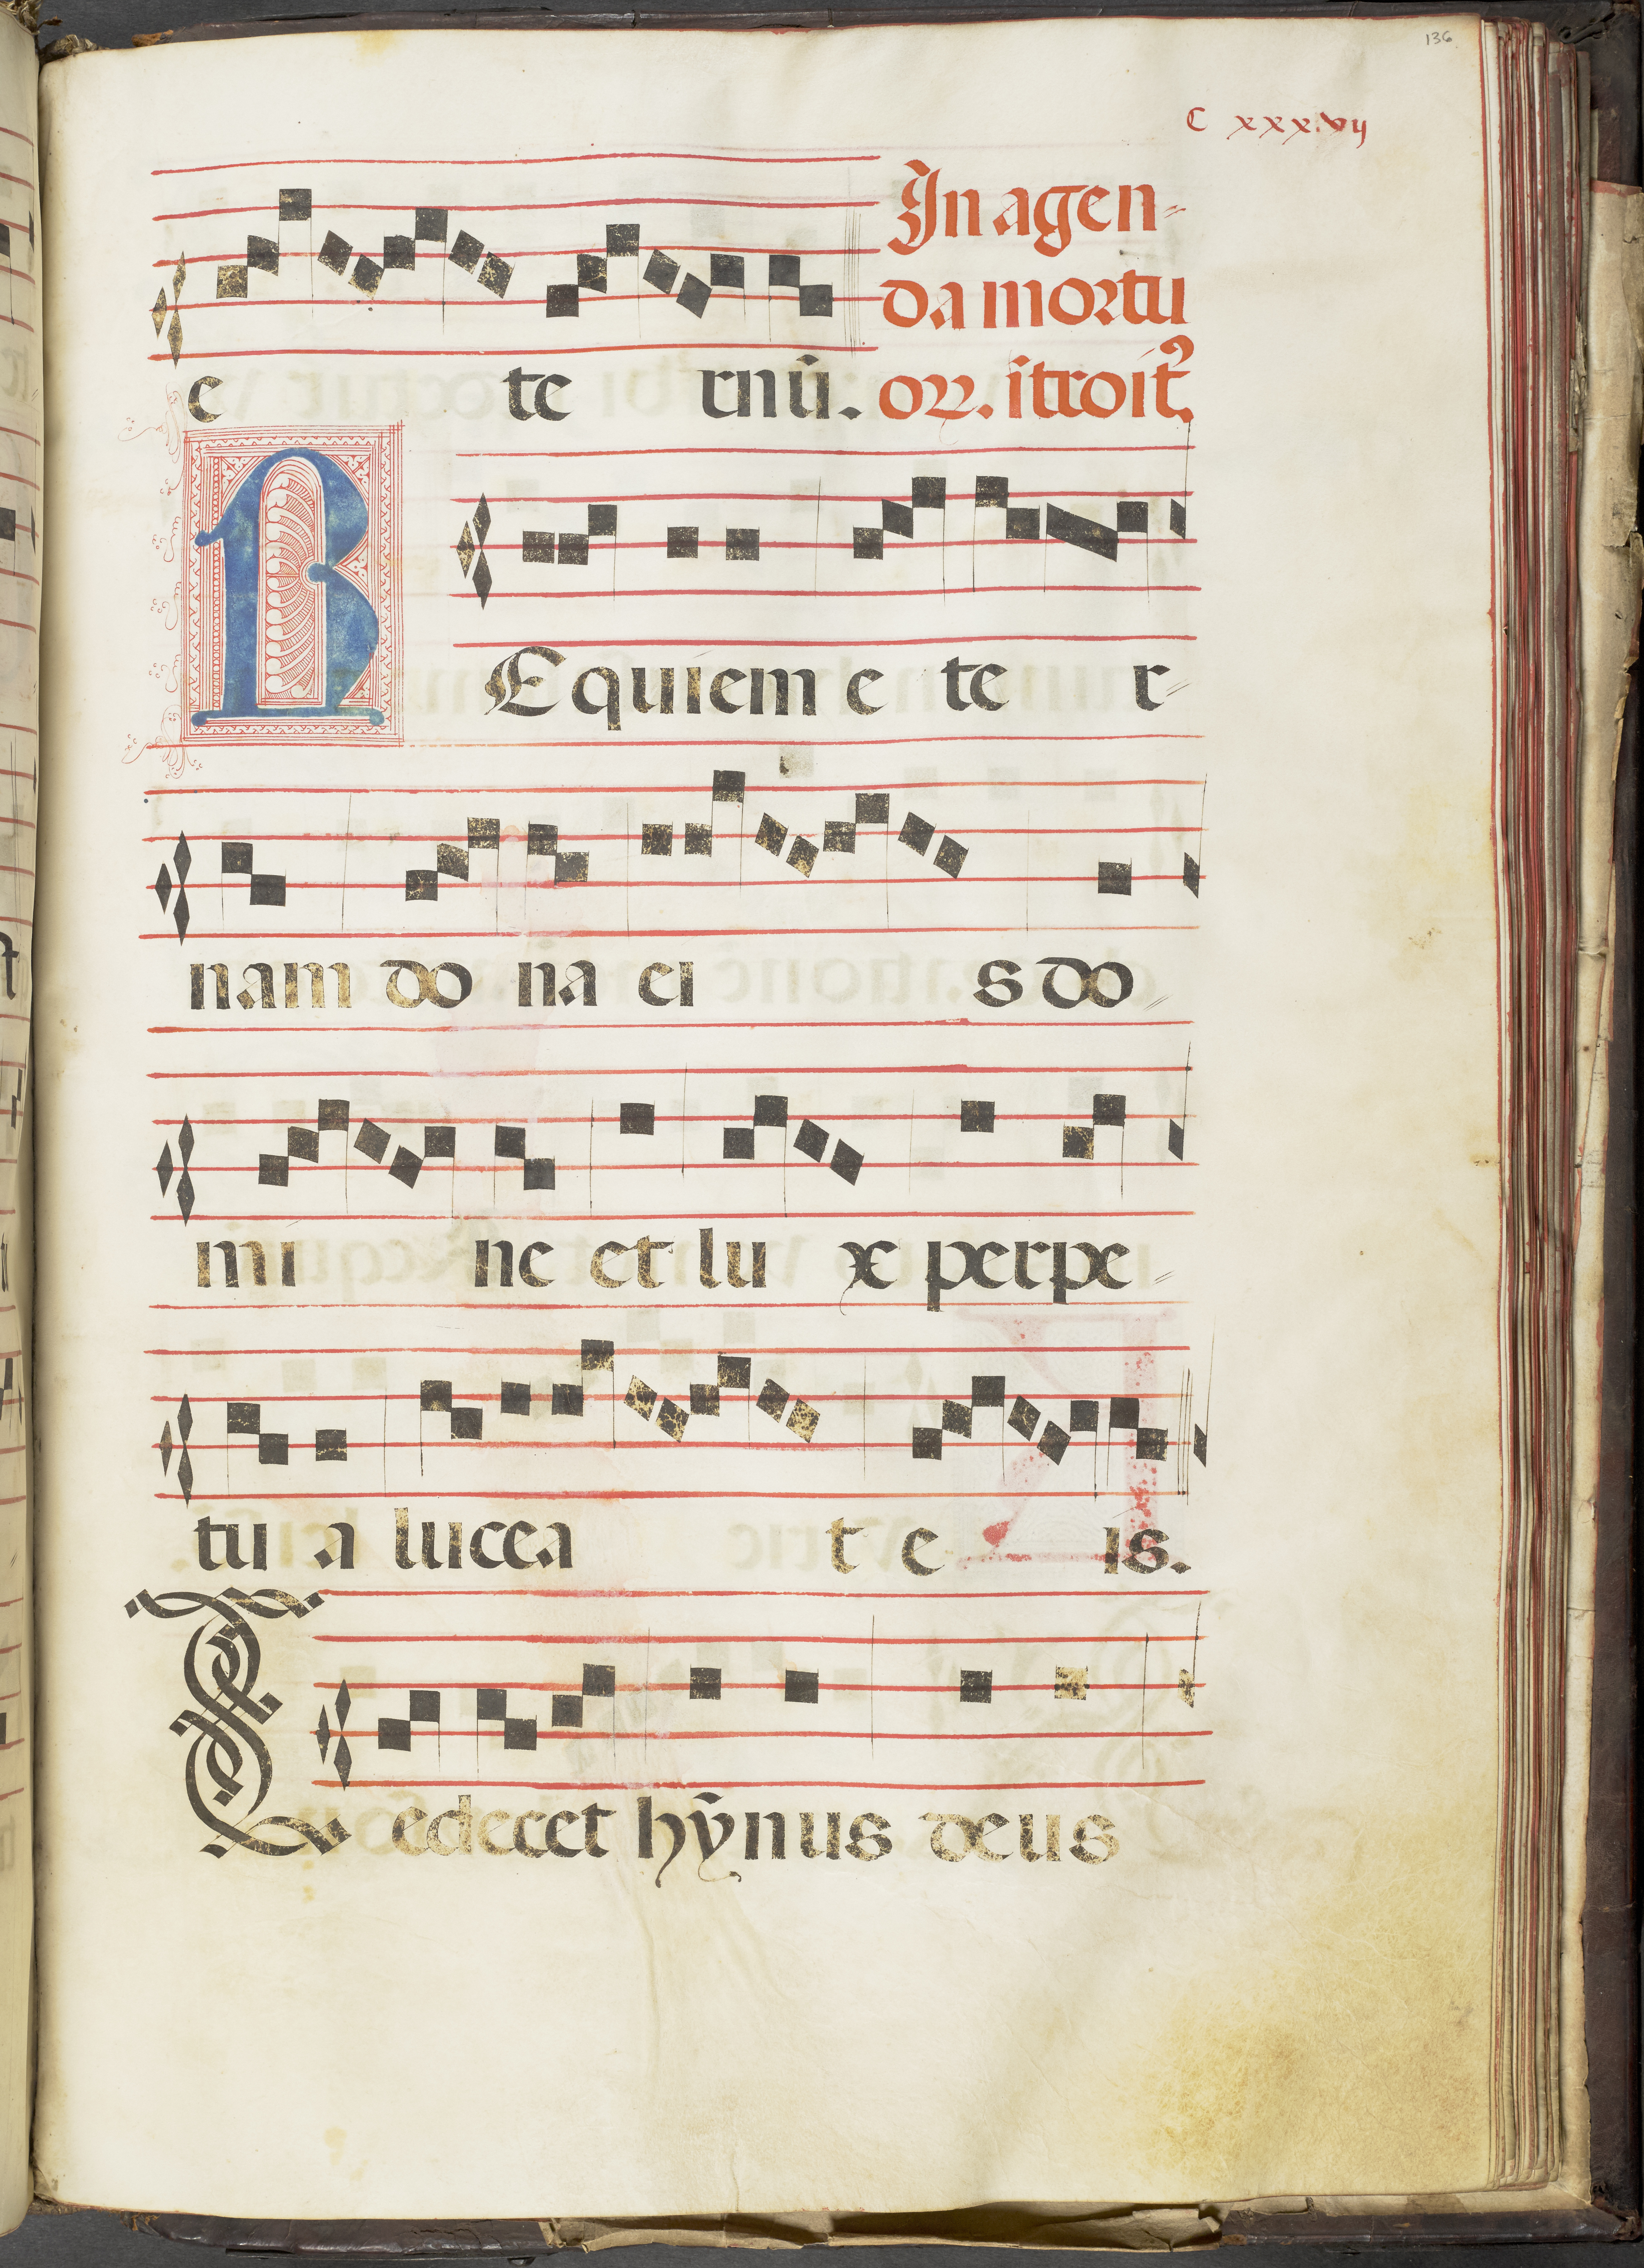 136
C xxx.vij
In agen-
da mortu
e te rnū. oꝝ. ītroit᾽.
R Equiem e te r-
nam do na ei s do-
mi ne et lu x perpe-
tu a lucea t e is.
Te decet hȳnus deus